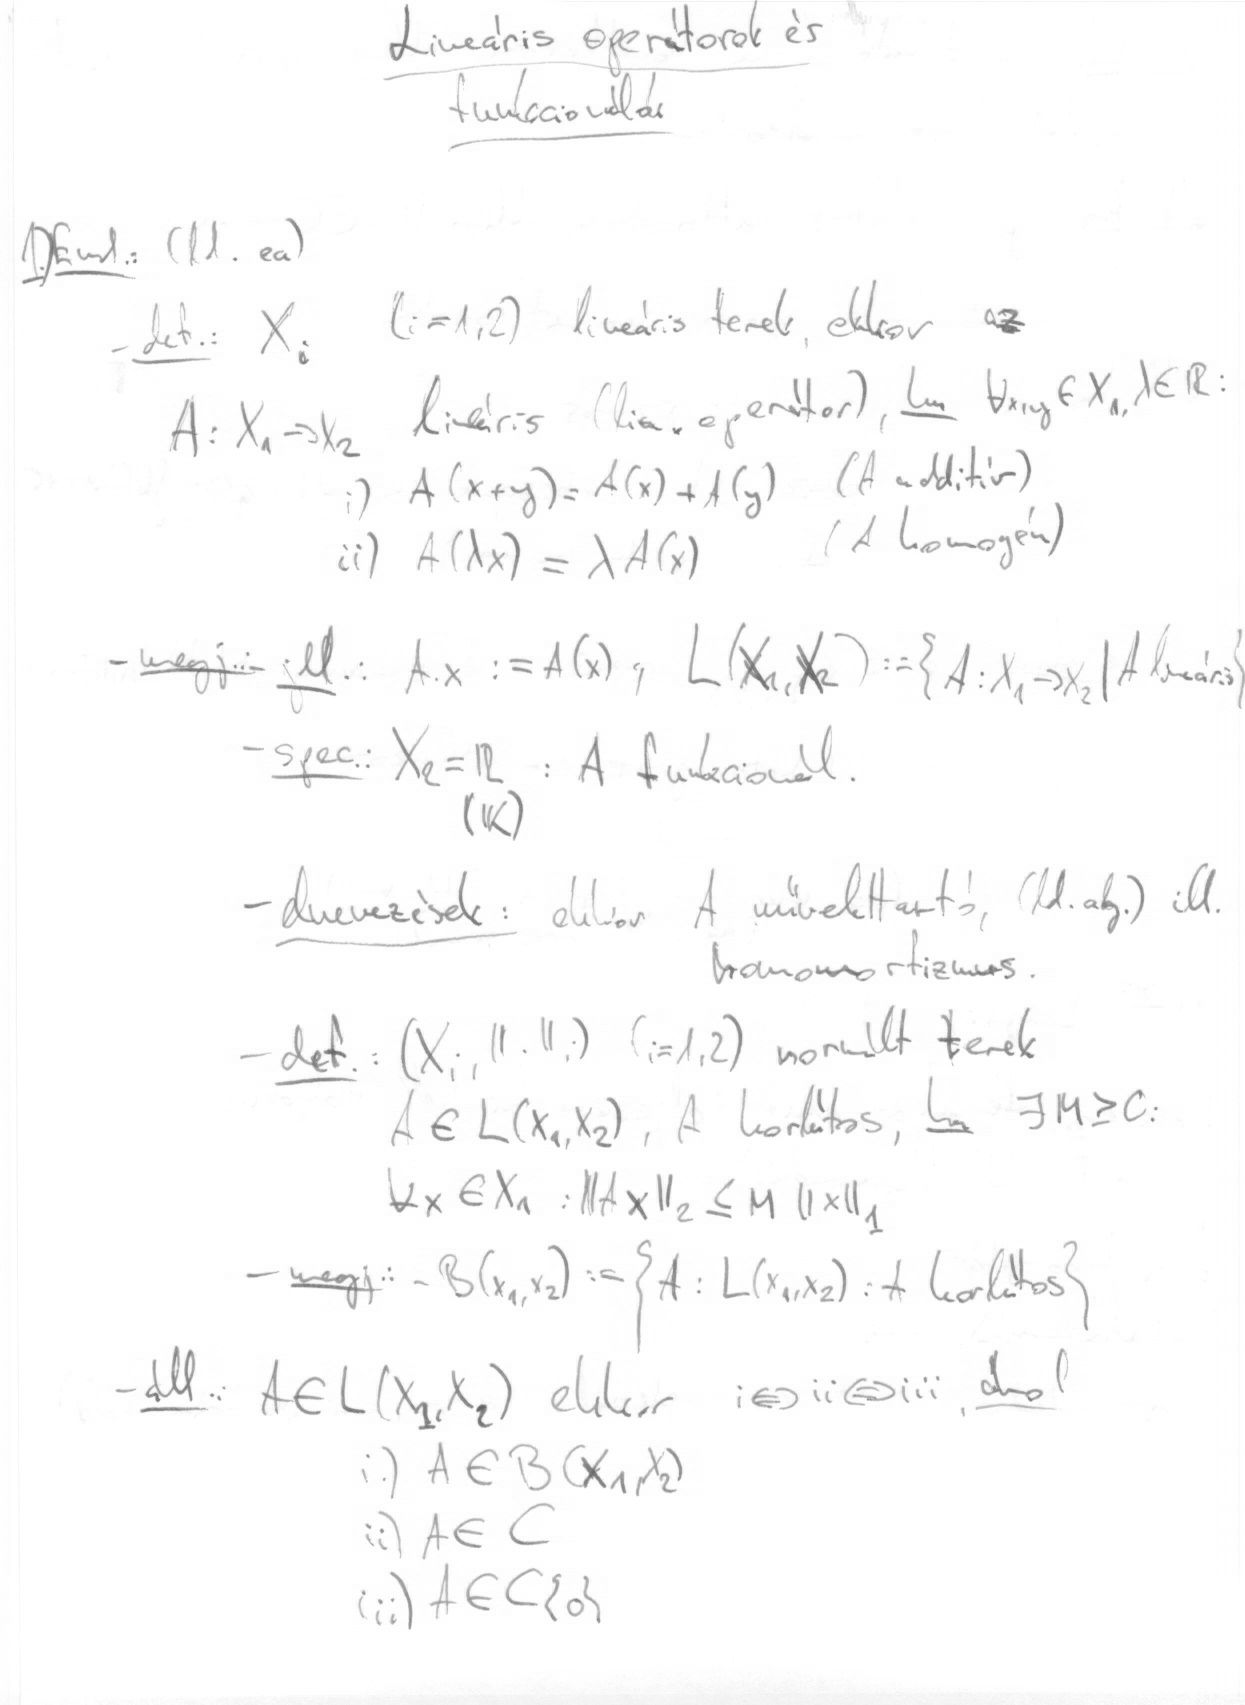 Lineáris operátorok és
funkcionálok
1.) Eml.: (ld. ea)
- def.: Xᵢ (i=1,2) lineáris terek, ekkor az
A: X₁ → X₂ lineáris (lin. operátor), ha ∀x,y ∈ X₁, λ ∈ ℝ:
i) A(x+y) = A(x) + A(y) (A additív)
ii) A(λx) = λA(x) (A homogén)
- megj.: - jel.: A.x := A(x), L(X₁,X₂) := {A: X₁ → X₂ | A lineáris}
- spec.: X₂ = ℝ : A funkcionál.
(𝕂)
- elnevezések: ekkor A művelettartó, (ld. alg.) ill.
homomorfizmus.
- def.: (Xᵢ, ||.||ᵢ) (i=1,2) normált terek
A ∈ L(X₁,X₂), A korlátos, ha ∃M ≥ 0:
∀x ∈ X₁ : ||Ax||₂ ≤ M ||x||₁
- megj.: - B(X₁,X₂) := {A : L(X₁,X₂) : A korlátos}
- áll.: A ∈ L(X₁,X₂) ekkor i ⇔ ii ⇔ iii, ahol
i.) A ∈ B(X₁,X₂)
ii) A ∈ C
iii) A ∈ C{0}